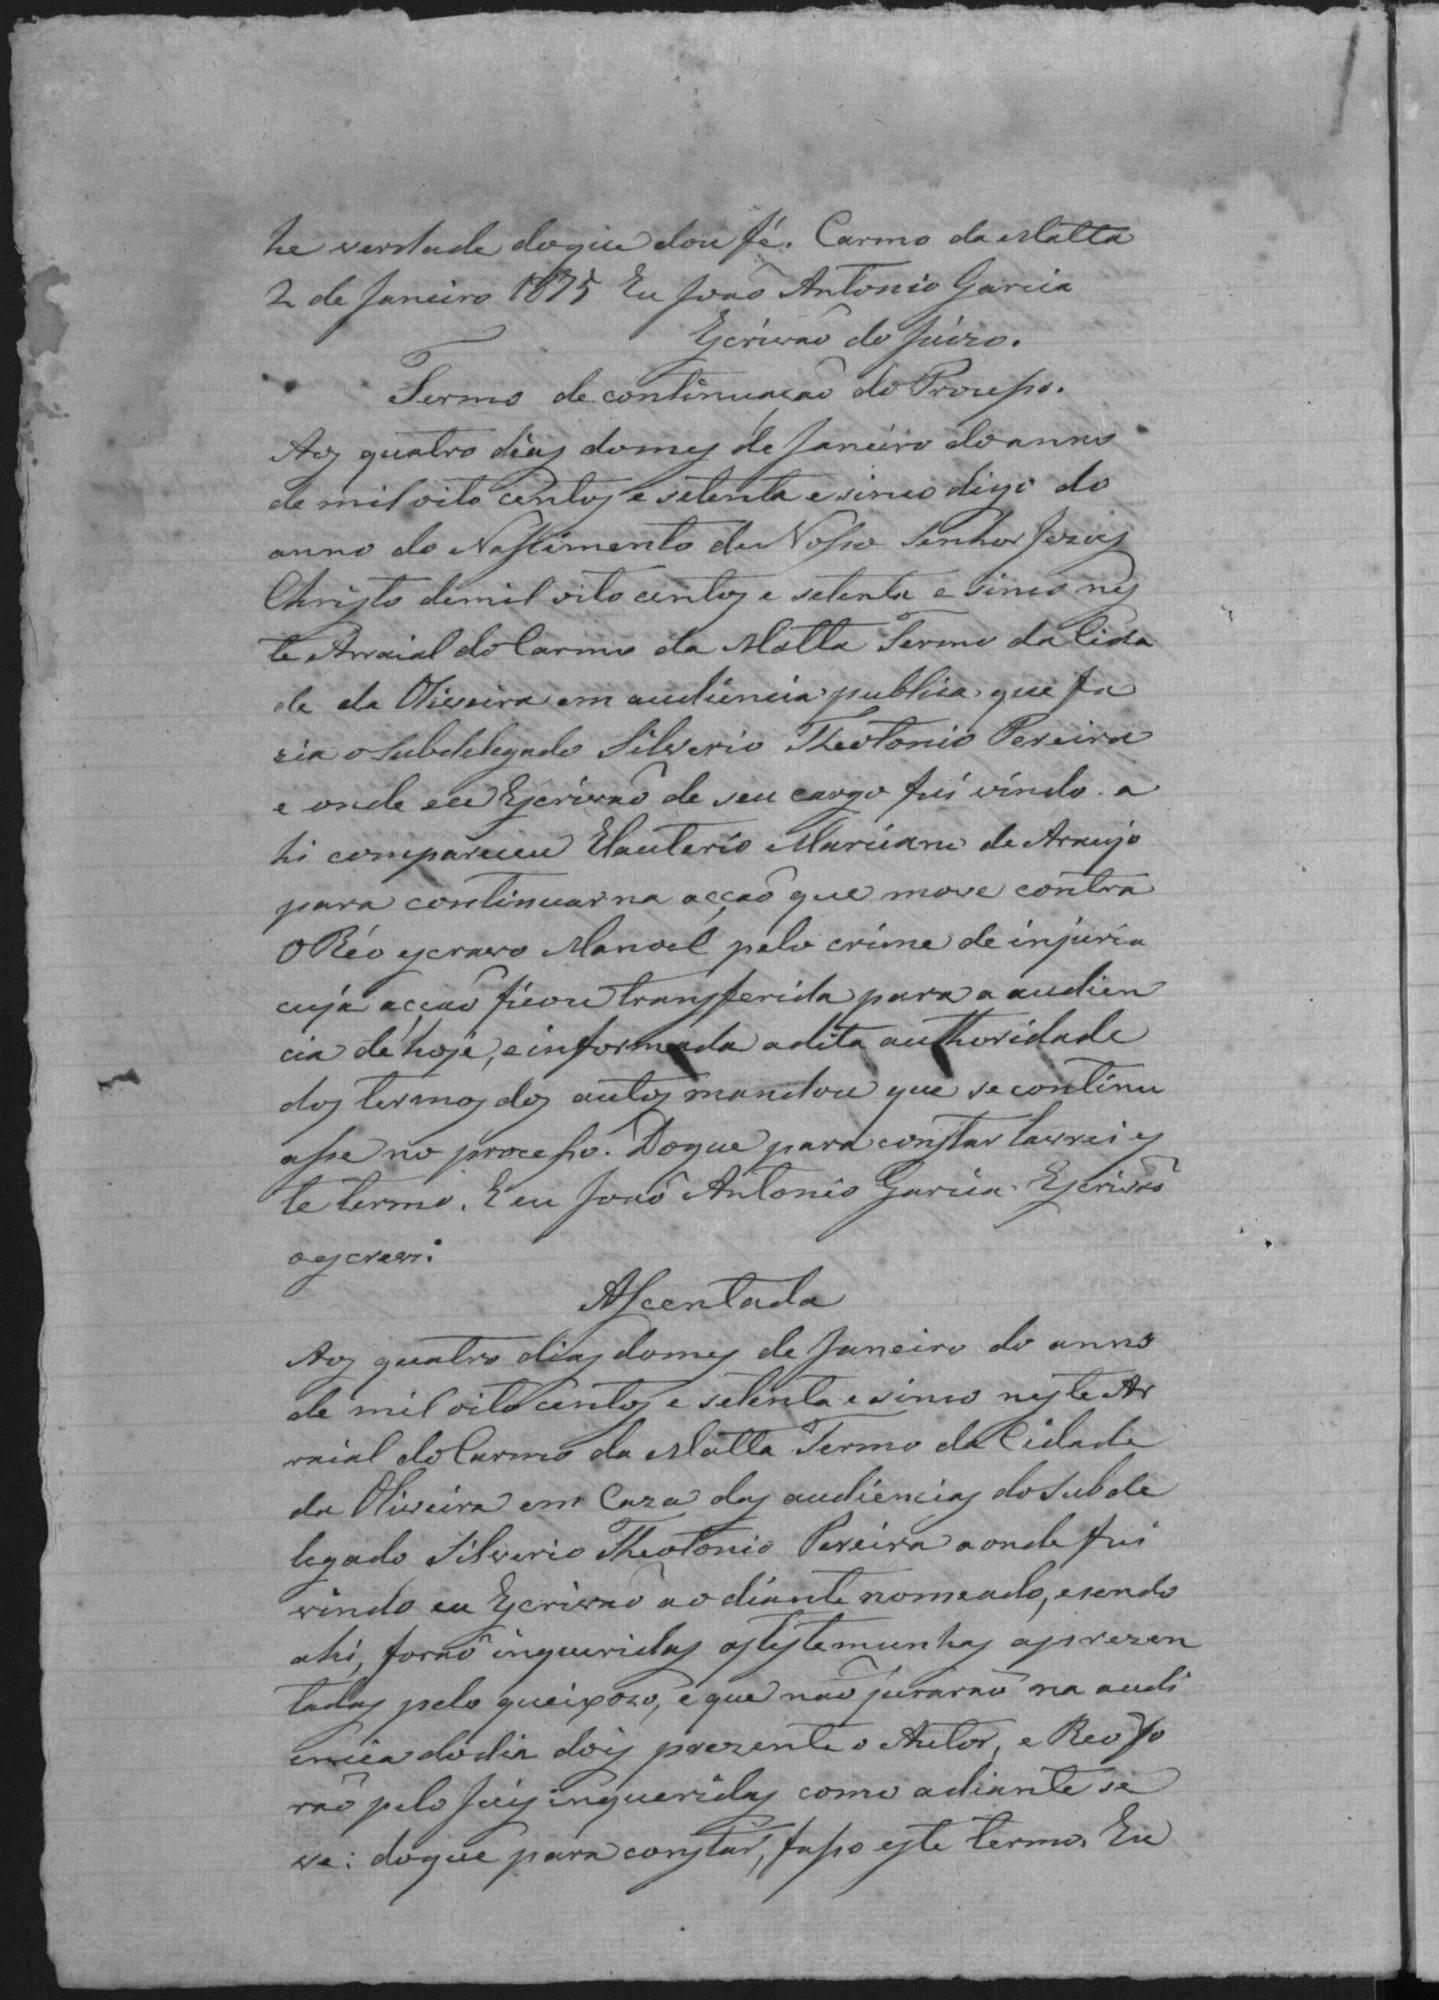 he verdade doque dou fé. Carmo da Matta
2 de Janeiro 1875 Eu João Antonio Garcia
Escrivaõ do Juizo.
Termo de continuaçaõ do Processo.
Aos quatro dias domes de Janeiro do anno
de mil oito centos e setenta e sinco digo do
anno do Nascimento de Nosso Senhor Jezus
Christo demil oito centos e setenta e sinco nes
te Arraial do Carmo da Matta Termo da Cida
de da Oliveira em audiencia publica que fa
zia o Subdelegado Silverio Theotonio Pereira
e onde eu Escrivaõ de seu cargo fui vindo a
hi compareceu Elauterio Mariano de Araujo
para continuar na acçaõ que move contra
O Réo escravo Manoel pelo crime de injuria
cuja acçaõ ficou transferida para a audien
cia de hoje, e informada a dita authoridade
dos termos dos autos mandou que se continu
asse no processo. Doque para constar lavrei es
te termo. E eu João Antonio Garcia Escrivaõ
o escrevi.
Ascentada
Aos quatro dias domes de Janeiro do anno
de mil oito centos e setenta e sinco neste Ar
raial do Carmo da Matta Termo da Cidade
da Oliveira em Caza das audiencias do Subde
legado Silverio Theotonio Pereira aonde fui
vindo eu Escrivaõ ao diante nomeado, e sendo
ahi, foraõ inqueridas as testemunhas aprezen
tadas pelo queixozo, e que naõ juraraõ na audi
encia do dia dois prezente o Autor, e Reo fo
raõ pelo Juis inqueridas como adiante se
ve: doque para constar, fasso este termo. Eu